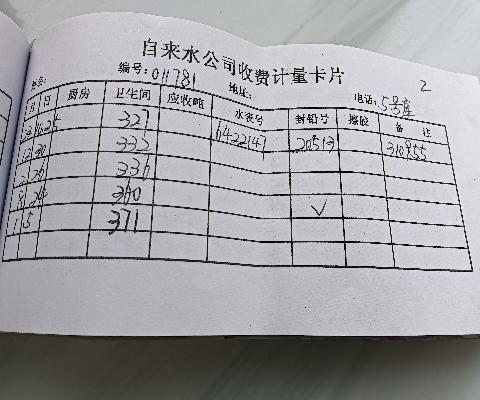 自来水公司收费计量卡片
2
编号:011781 地址: 电话: 5号库
姓名:
月 日 厨房 卫生间 应收吨 水表号 封铅号 搬胶 备注
327 6422147 20513 310855
30 332
2 26 336
8 24 360 √
1 5 371